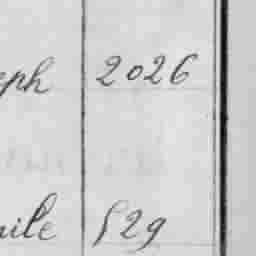 eph 2026
nile 529